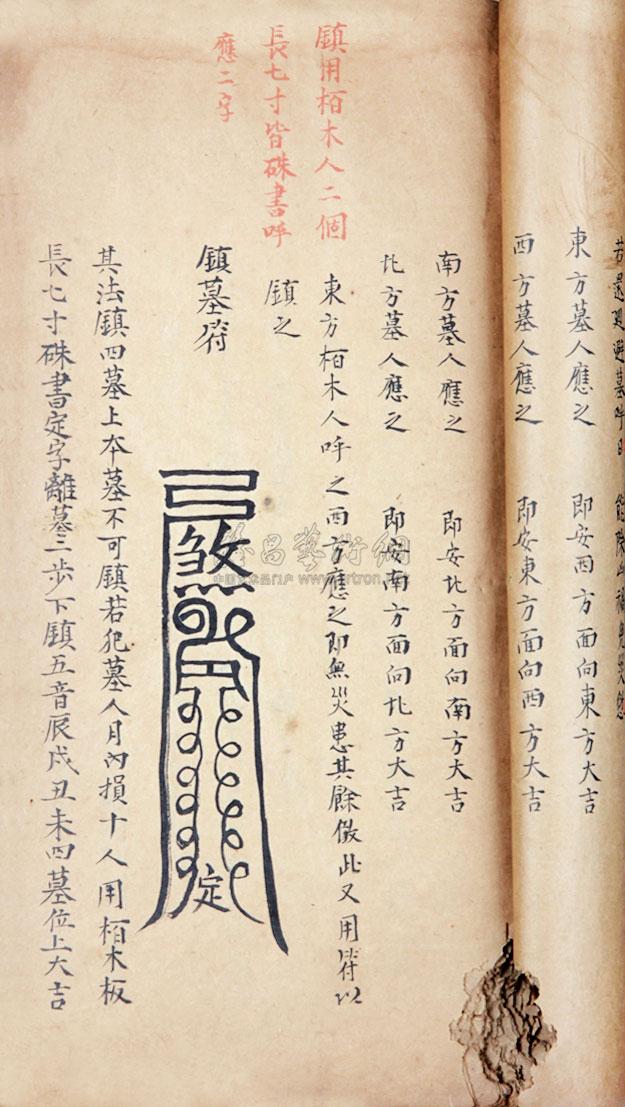 東方墓人應之 即安西方面向東方大吉
西方墓人應之 即安東方面向西方大吉
南方墓人應之 即安北方面向南方大吉
北方墓人應之 即安南方面向北方大吉
鎮用栢木人二個
長七寸皆硃書呼
應二字
東方栢木人呼之西方應之即無災患其餘倣此又用符以
鎮之
鎮墓符
煞
定
其法鎮四墓上本墓不可鎮若犯墓人月內損十人用栢木板
長七寸硃書定字離墓三步下鎮五音辰戌丑未四墓位上大吉